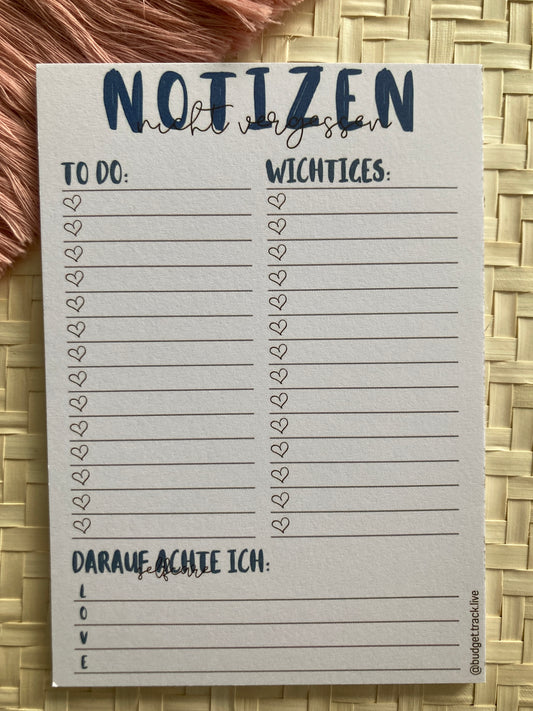 NOTIZEN
nicht vergessen
TO DO:
WICHTIGES:
DARAUF ACHTE ICH:
selfcare
L
O
V
E
@budget.track.live